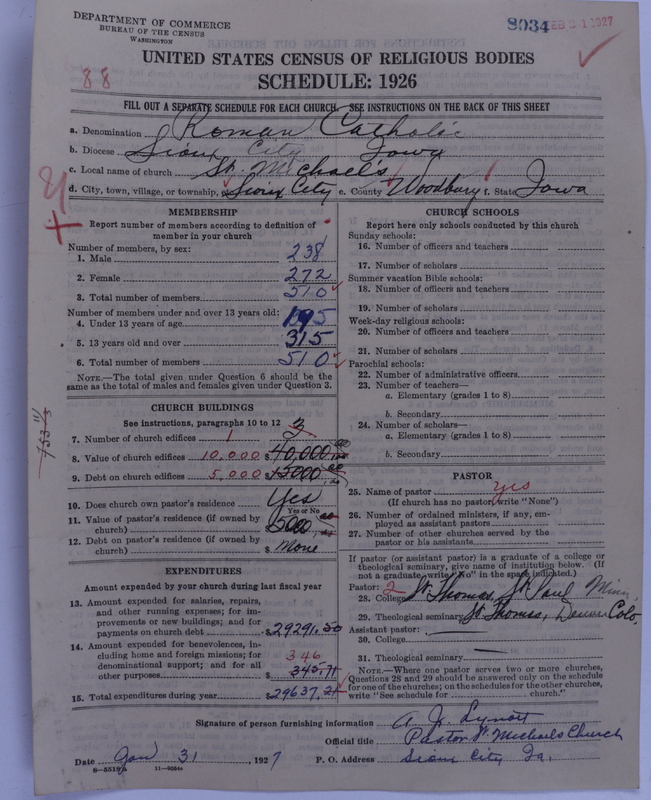 DEPARTMENT OF COMMERCE
BUREAU OF THE CENSUS
WASHINGTON
8034 FEB 21 1927
UNITED STATES CENSUS OF RELIGIOUS BODIES
88
SCHEDULE: 1926
FILL OUT A SEPARATE SCHEDULE FOR EACH CHURCH. SEE INSTRUCTIONS ON THE BACK OF THIS SHEET
a. Denomination Roman Catholic
b. Diocese Sioux City Iowa
c. Local name of church St. Michael's
d. City, town, village, or township, Sioux City e. County Woodbury f. State Iowa
MEMBERSHIP
Report number of members according to definition of
member in your church
Number of members, by sex:
1. Male 238
2. Female 272
3. Total number of members 510
Number of members under and over 13 years old:
4. Under 13 years of age 195
5. 13 years old and over 315
6. Total number of members 510
NOTE.—The total given under Question 6 should be the
same as the total of males and females given under Question 3.
CHURCH BUILDINGS
See instructions, paragraphs 10 to 12
7. Number of church edifices 1 3
8. Value of church edifices 10,000 $ 40,000
9. Debt on church edifices 5,000 $ 15000
10. Does church own pastor's residence Yes
Yes or No
11. Value of pastor's residence (if owned by
church) $ 5000
12. Debt on pastor's residence (if owned by
church) $ None
EXPENDITURES
Amount expended by your church during last fiscal year
13. Amount expended for salaries, repairs,
and other running expenses; for im-
provements or new buildings; and for
payments on church debt $ 29291.50
14. Amount expended for benevolences, in-
cluding home and foreign missions; for
denominational support; and for all 346
other purposes $ 345.71
15. Total expenditures during year $ 29637.21
CHURCH SCHOOLS
Report here only schools conducted by this church
Sunday schools:
16. Number of officers and teachers
17. Number of scholars
Summer vacation Bible schools:
18. Number of officers and teachers
19. Number of scholars
Week-day religious schools:
20. Number of officers and teachers
21. Number of scholars
Parochial schools:
22. Number of administrative officers
23. Number of teachers—
a. Elementary (grades 1 to 8)
b. Secondary
24. Number of scholars—
a. Elementary (grades 1 to 8)
b. Secondary
PASTOR
25. Name of pastor yes
(If church has no pastor, write "None")
26. Number of ordained ministers, if any, em-
ployed as assistant pastors
27. Number of other churches served by the
pastor or his assistants
If pastor (or assistant pastor) is a graduate of a college or
theological seminary, give name of institution below. (If
not a graduate, write "No" in the space indicated.)
Pastor: 2
28. College St Thomas, St Paul Minn,
29. Theological seminary St Thomas, Denver Colo.
Assistant pastor:
30. College
31. Theological seminary
NOTE.—Where one pastor serves two or more churches,
Questions 28 and 29 should be answered only on the schedule
for one of the churches; on the schedules for the other churches,
write "See schedule for church."
Signature of person furnishing information A. J. Lynott
Official title Pastor St Michaels Church
Date Jan 31, 1927 P. O. Address Sioux City Ia.